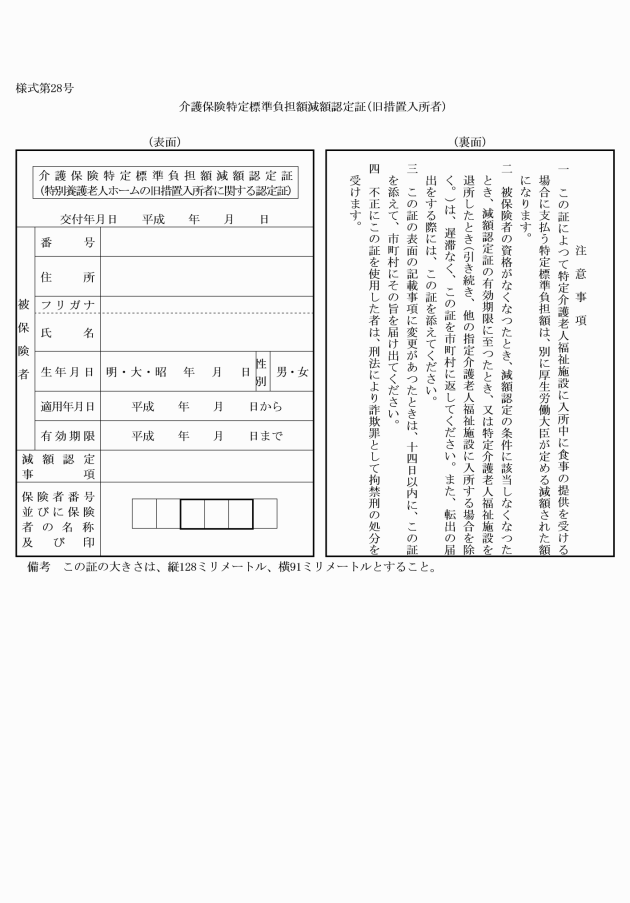 様式第28号
介護保険特定標準負担額減額認定証(旧措置入所者)
(表面)
介護保険特定標準負担額減額認定証
(特別養護老人ホームの旧措置入所者に関する認定証)
交付年月日 平成 年 月 日
被保険者
番号
住所
フリガナ
氏名
生年月日 明・大・昭 年 月 日 性別 男・女
適用年月日 平成 年 月 日から
有効期限 平成 年 月 日まで
減額認定
事項
保険者番号
並びに保険
者の名称
及び印
(裏面)
注意事項
一 この証によつて特定介護老人福祉施設に入所中に食事の提供を受ける
場合に支払う特定標準負担額は、別に厚生労働大臣が定める減額された額
になります。
二 被保険者の資格がなくなつたとき、減額認定の条件に該当しなくなつた
とき、減額認定証の有効期限に至つたとき、又は特定介護老人福祉施設を
退所したとき(引き続き、他の指定介護老人福祉施設に入所する場合を除
く。)は、遅滞なく、この証を市町村に返してください。また、転出の届
出をする際には、この証を添えてください。
三 この証の表面の記載事項に変更があつたときは、十四日以内に、この証
を添えて、市町村にその旨を届け出てください。
四 不正にこの証を使用した者は、刑法により詐欺罪として拘禁刑の処分を
受けます。
備考 この証の大きさは、縦128ミリメートル、横91ミリメートルとすること。